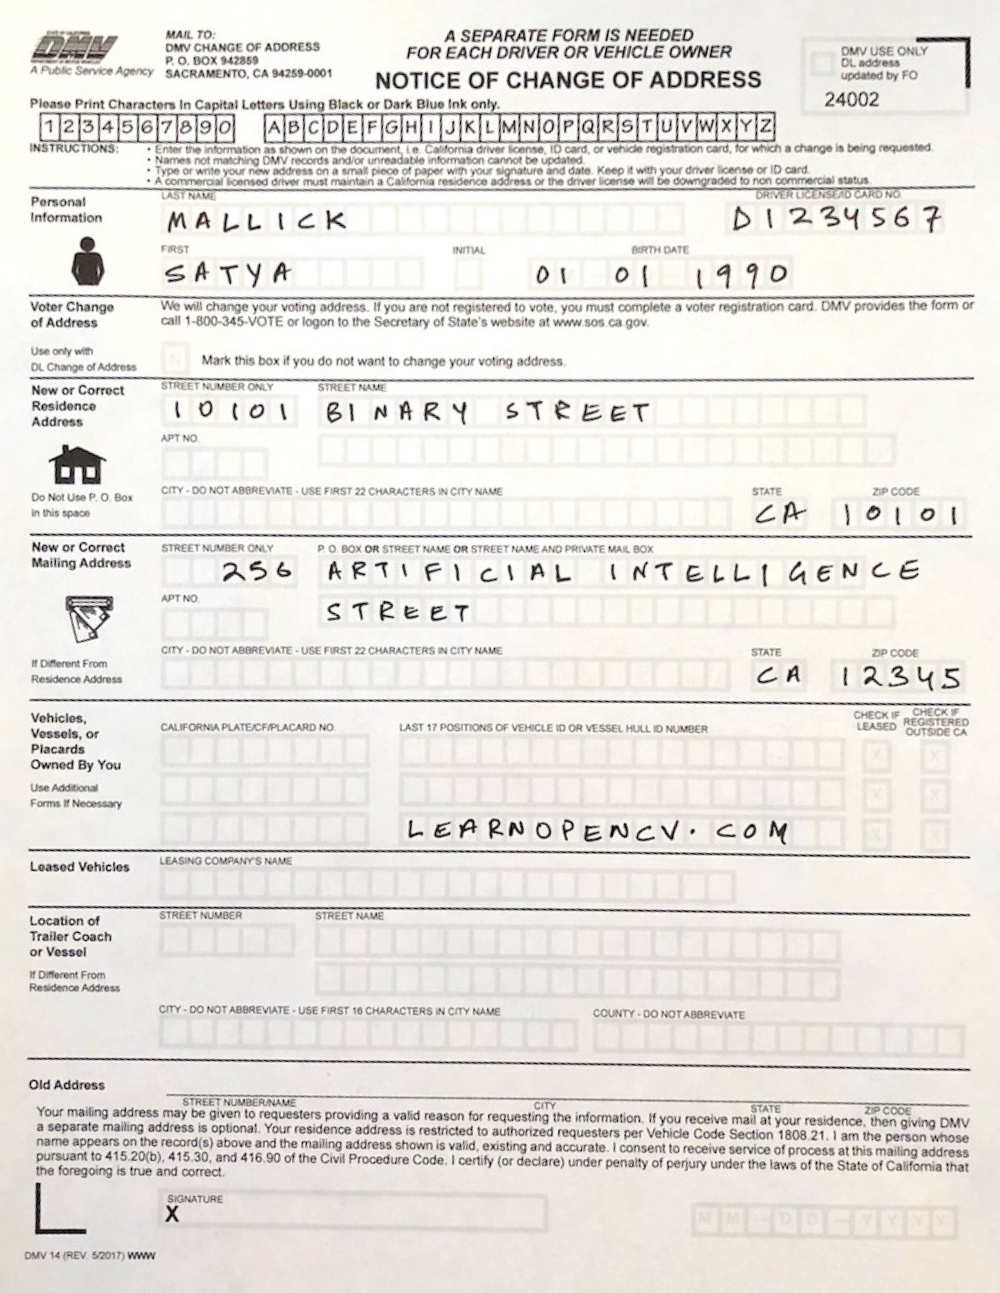 STATE OF CALIFORNIA
DMV
DEPARTMENT OF MOTOR VEHICLES
A Public Service Agency
MAIL TO:
DMV CHANGE OF ADDRESS
P. O. BOX 942859
SACRAMENTO, CA 94259-0001
A SEPARATE FORM IS NEEDED
FOR EACH DRIVER OR VEHICLE OWNER
NOTICE OF CHANGE OF ADDRESS
DMV USE ONLY
DL address
updated by FO
24002
Please Print Characters In Capital Letters Using Black or Dark Blue Ink only.
1 2 3 4 5 6 7 8 9 0 A B C D E F G H I J K L M N O P Q R S T U V W X Y Z
INSTRUCTIONS: • Enter the information as shown on the document, i.e. California driver license, ID card, or vehicle registration card, for which a change is being requested.
• Names not matching DMV records and/or unreadable information cannot be updated.
• Type or write your new address on a small piece of paper with your signature and date. Keep it with your driver license or ID card.
• A commercial licensed driver must maintain a California residence address or the driver license will be downgraded to non commercial status.
Personal
Information
LAST NAME DRIVER LICENSE/ID CARD NO.
MALLICK D1234567
FIRST INITIAL BIRTH DATE
SATYA 01 01 1990
Voter Change
of Address
We will change your voting address. If you are not registered to vote, you must complete a voter registration card. DMV provides the form or
call 1-800-345-VOTE or logon to the Secretary of State's website at www.sos.ca.gov.
Use only with
DL Change of Address
Mark this box if you do not want to change your voting address.
New or Correct
Residence
Address
STREET NUMBER ONLY STREET NAME
10101 BINARY STREET
APT NO.
Do Not Use P. O. Box
in this space
CITY - DO NOT ABBREVIATE - USE FIRST 22 CHARACTERS IN CITY NAME STATE ZIP CODE
CA 10101
New or Correct
Mailing Address
STREET NUMBER ONLY P. O. BOX OR STREET NAME OR STREET NAME AND PRIVATE MAIL BOX
256 ARTIFICIAL INTELLIGENCE
APT NO.
STREET
If Different From
Residence Address
CITY - DO NOT ABBREVIATE - USE FIRST 22 CHARACTERS IN CITY NAME STATE ZIP CODE
CA 12345
Vehicles,
Vessels, or
Placards
Owned By You
Use Additional
Forms If Necessary
CALIFORNIA PLATE/CF/PLACARD NO. LAST 17 POSITIONS OF VEHICLE ID OR VESSEL HULL ID NUMBER
CHECK IF
LEASED
CHECK IF
REGISTERED
OUTSIDE CA
X X
X X
LEARNOPENCV.COM X X
Leased Vehicles
LEASING COMPANY'S NAME
Location of
Trailer Coach
or Vessel
If Different From
Residence Address
STREET NUMBER STREET NAME
CITY - DO NOT ABBREVIATE - USE FIRST 16 CHARACTERS IN CITY NAME COUNTY - DO NOT ABBREVIATE
Old Address
STREET NUMBER/NAME CITY STATE ZIP CODE
Your mailing address may be given to requesters providing a valid reason for requesting the information. If you receive mail at your residence, then giving DMV
a separate mailing address is optional. Your residence address is restricted to authorized requesters per Vehicle Code Section 1808.21. I am the person whose
name appears on the record(s) above and the mailing address shown is valid, existing and accurate. I consent to receive service of process at this mailing address
pursuant to 415.20(b), 415.30, and 416.90 of the Civil Procedure Code. I certify (or declare) under penalty of perjury under the laws of the State of California that
the foregoing is true and correct.
SIGNATURE
X
M M — D D — Y Y Y Y
DMV 14 (REV. 5/2017) WWW